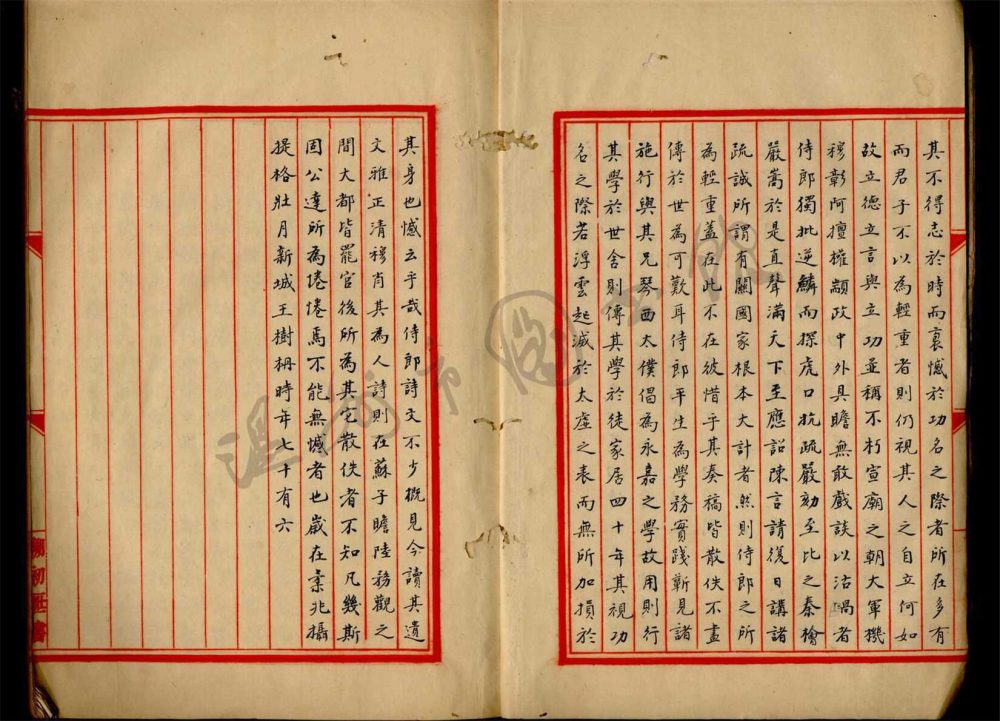 其不得志於時而裏憾於功名之際者所在多有
而君子不以為輕重者則仍視其人之自立何如
故立德立言與立功並稱不朽宣廟之朝大軍機
穆彰阿擅權顓政中外具瞻無敢戲談以沽禍者
侍郎獨批逆鱗而探虎口抗疏嚴劾至比之秦檜
嚴嵩於是直聲滿天下至應詔陳言請復日講諸
疏誠所謂有關國家根本大計者然則侍郎之所
為輕重蓋在此不在彼惜乎其奏稿皆散佚不盡
傳於世為可歎耳侍郎平生為學務實踐蘄見諸
施行與其兄琴西太僕倡為永嘉之學故用則行
其學於世舍則傳其學於徒家居四十年其視功
名之際若浮雲起滅於太虛之表而無所加損於
其身也憾云乎哉侍郎詩文不少概見今讀其遺
文雅正清穆肖其為人詩則在蘇子瞻陸務觀之
間大都皆罷官後所為其它散佚者不知凡幾斯
固公達所為倦倦焉不能無憾者也歲在柔兆攝
提格壯月新城王樹枏時年七十有六
溫州市圖書館